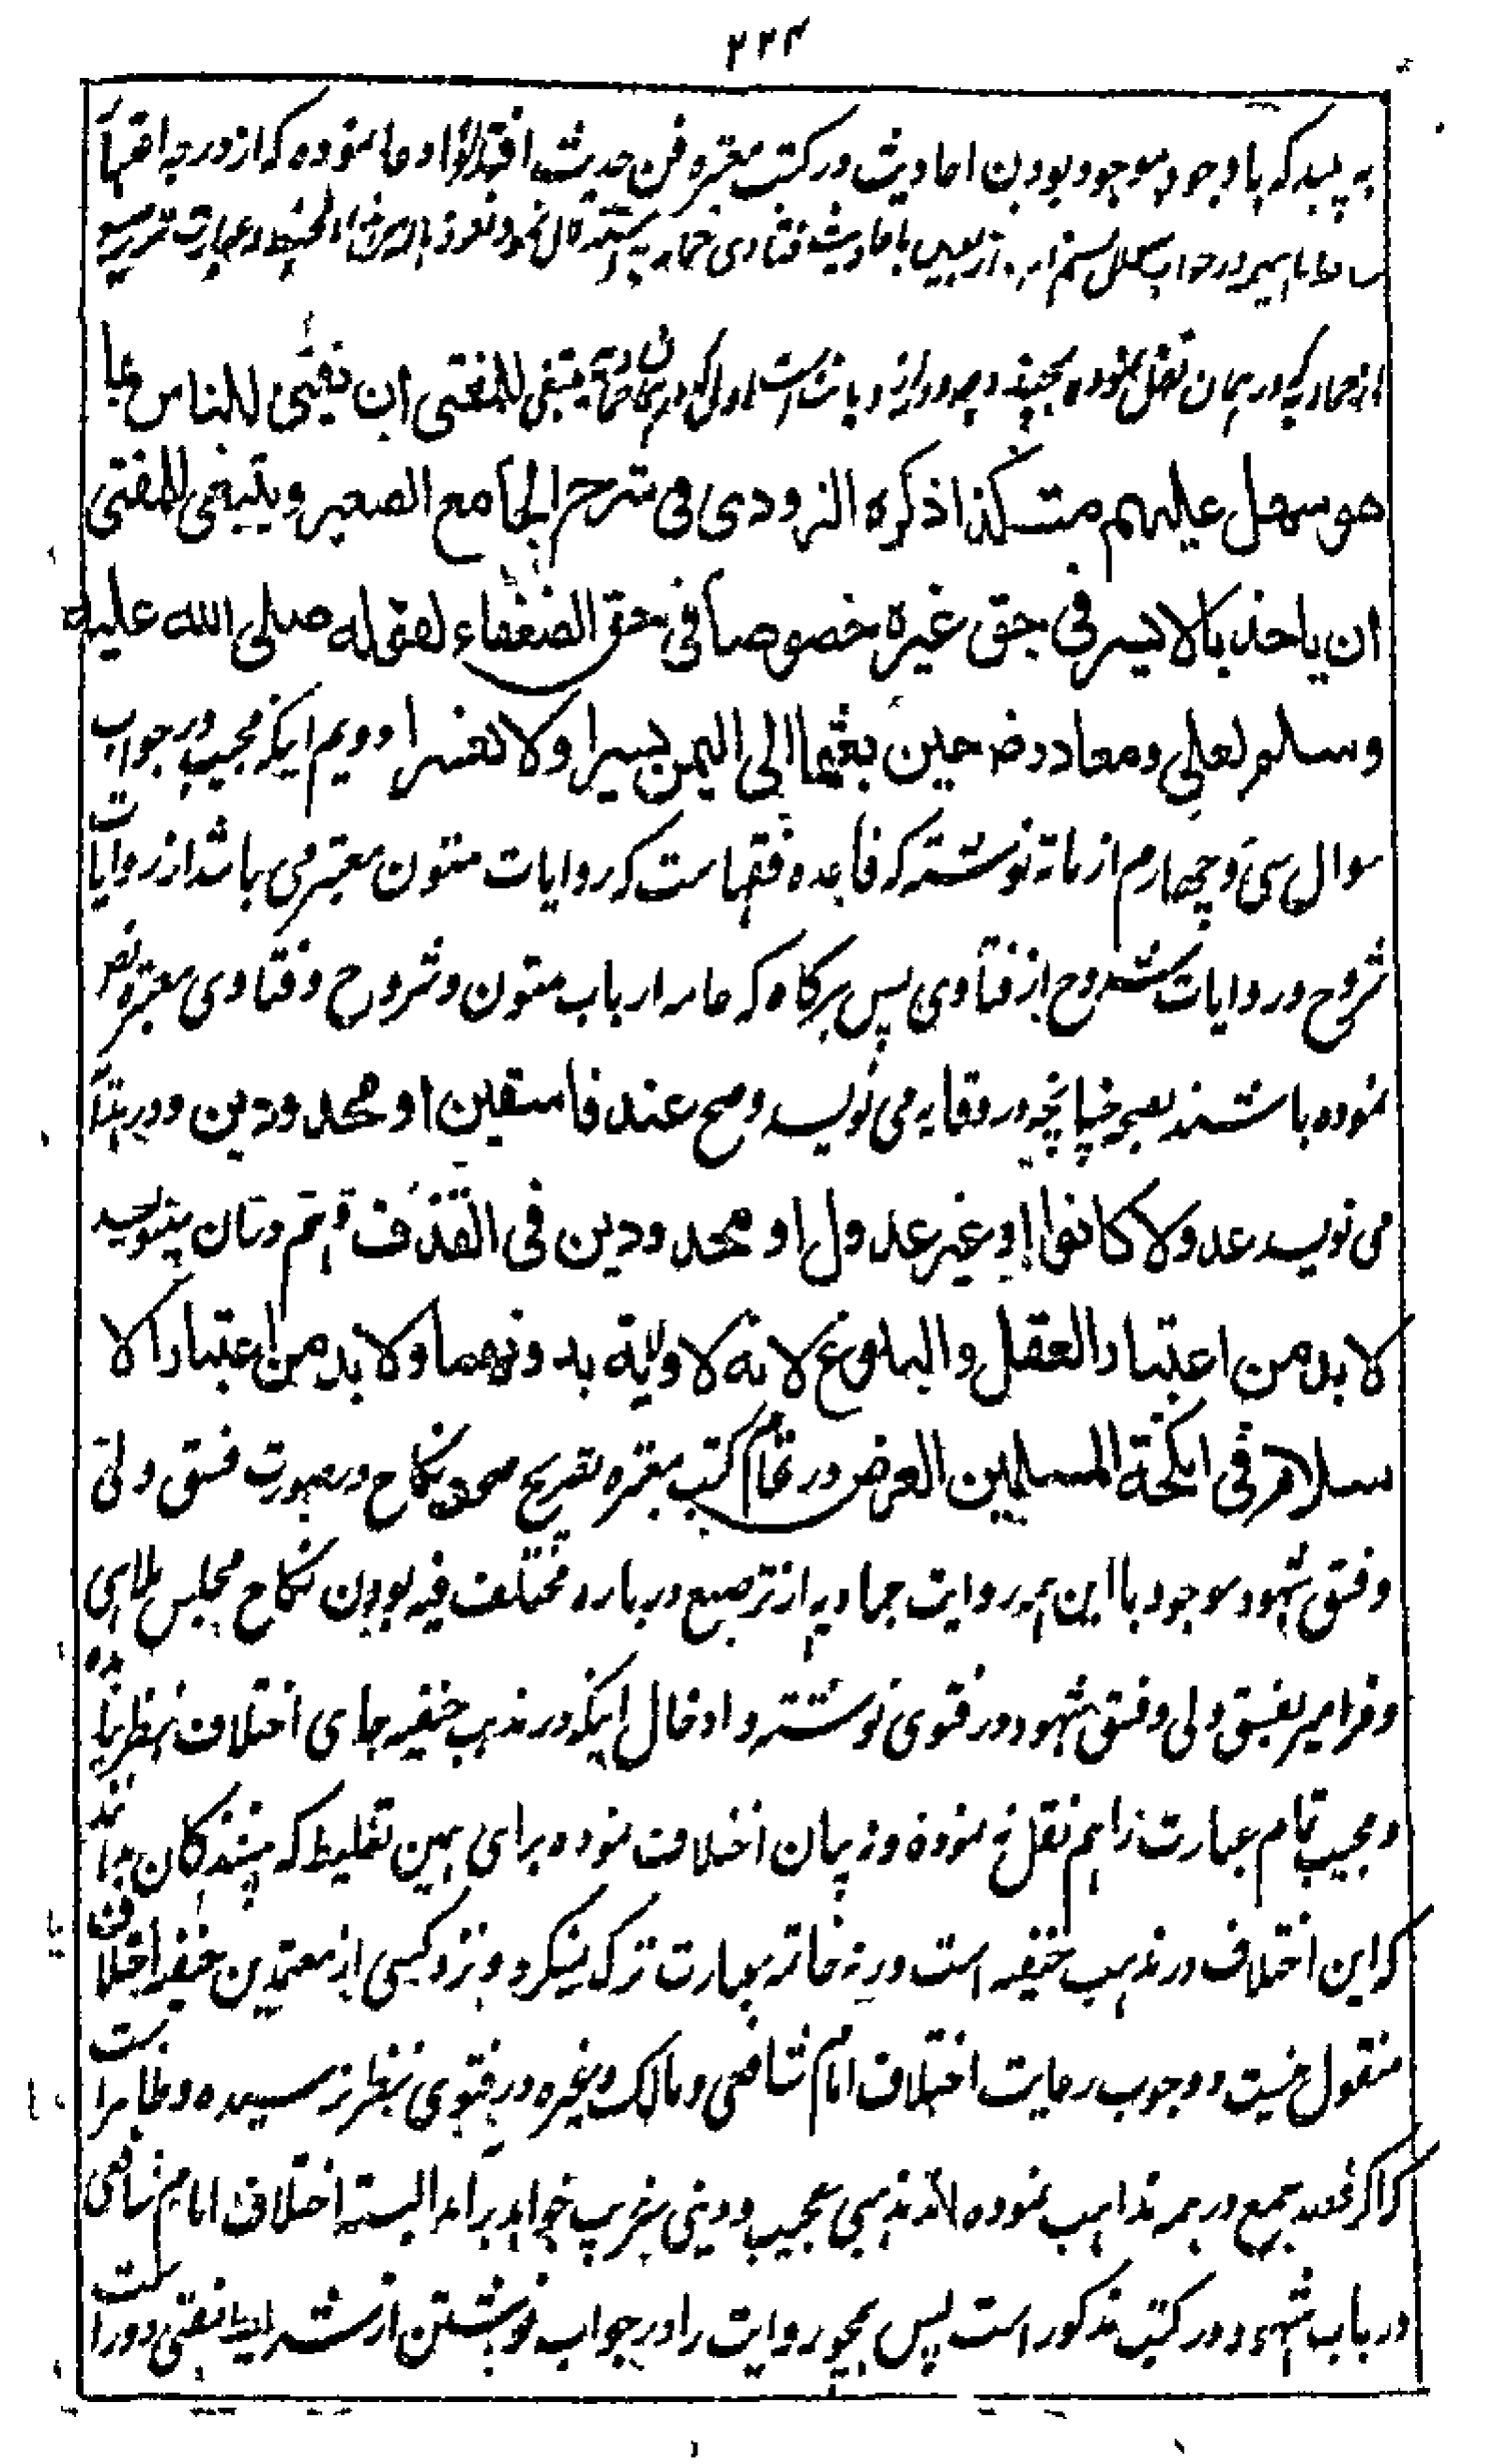 ۲۲۴
به بیند که با وجود موجود بودن احادیث در کتب معتبره فن حدیث نموده که از درجه
احادیث فتاوی و عبارت
در همان نقل نموده بچند وجوه از دیانت است اول ینبغی للمفتی ان یفتی للناس بما
هو سهل علیهم کذا ذکره البزودی فی شرح الجامع الصغیر وینبغی للمفتی
ان یاخذ بالایسر فی حق غیره خصوصا فی حق الضعفاء لقوله صلی الله علیه
وسلم لعلی ومعاذ رض حین بعثهما الی الیمن یسرا ولا تعسرا دویم اینکه مجیب در جواب
سوال سی و چهارم از مائة نوشته که قاعده فقها ست که روایات متون معتبر می باشد از روایات
شروح و روایات شروح از فتاوی پس هرگاه که عامه ارباب متون و شروح و فتاوی معتبره نص
نموده باشند چنانچه در وقایه می نویسد وصح عند فاسقین او محدودین و در هدایة
می نویسد عدولا کانوا او غیر عدول او محدودین فی القذف و هم در آن مینویسد
لا بد من اعتبار العقل والبلوغ لانه لا ولایة بدونهما ولا بد من اعتبار الا
سلام فی انکحة المسلمین الغرض در تمام کتب معتبره تصریح صحت نکاح در صورت فسق ولی
و فسق شهود موجود با این همه روایت حمادیه از ترصیع درباره مختلف فیه بودن نکاح مجلس ملاهی
و مزامیر بفسق ولی و فسق شهود در فتوی نوشته و ادخال اینکه در مذهب حنفیه جای اختلاف بنظر نیامده
و مجیب تمام عبارت را هم نقل نه نموده و نه بیان اختلاف نموده برای همین تغلیط که بینندگان بدانند
که این اختلاف در مذهب حنفیه است ورنه خاتمه عبارت ترک نمیکرد و نزد کسی از معتمدین حنفیه اختلاف
منقول نیست و وجوب رعایت اختلاف امام شافعی و مالک و غیره در فتوی بنظر نرسیده و ظاهرا ست
که اگر قصد جمع در همه مذاهب نموده آید مذهبی عجیب و دینی غریب خواهد برآمد البته اختلاف امام شافعی
در باب شهود در کتب مذکور است پس همچو روایت را در جواب نوشتن از شرایط مفتی دور است